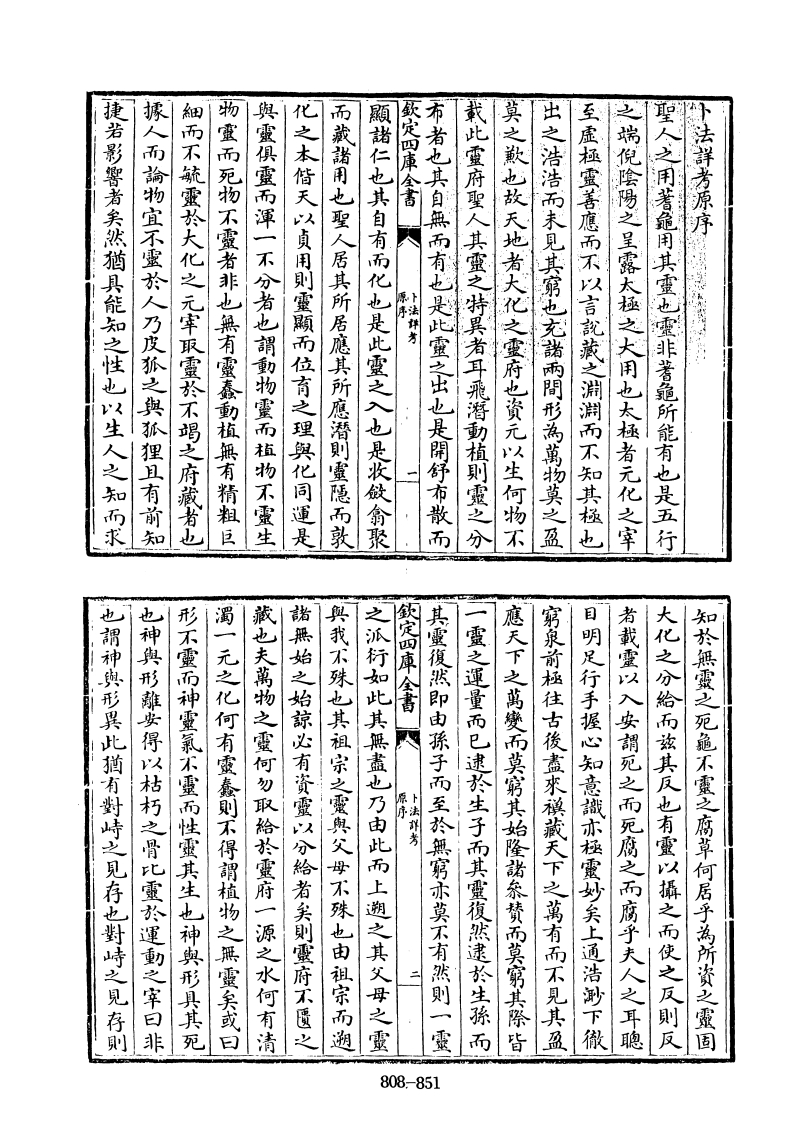 卜法詳考原序
聖人之用蓍龜用其靈也靈非蓍龜所能有也是五行
之端倪陰陽之呈露太極之大用也太極者元化之宰
至虛極靈善應而不以言說藏之淵淵而不知其極也
出之浩浩而未見其窮也充諸兩間形為萬物莫之盈
莫之歉也故天地者大化之靈府也資元以生何物不
載此靈府聖人其靈之特異者耳飛潛動植則靈之分
布者也其自無而有也是此靈之出也是開舒布散而
欽定四庫全書
卜法詳考
原序
一
顯諸仁也其自有而化也是此靈之入也是收斂翕聚
而藏諸用也聖人居其所居應其所應潛則靈隱而敦
化之本偕天以貞用則靈顯而位育之理與化同運是
與靈俱靈而渾一不分者也謂動物靈而植物不靈生
物靈而死物不靈者非也無有靈蠢動植無有精粗巨
細而不毓靈於大化之元宰取靈於不竭之府藏者也
據人而論物宜不靈於人乃皮狐之與狐狸且有前知
捷若影響者矣然猶具能知之性也以生人之知而求
知於無靈之死龜不靈之腐草何居乎為所資之靈固
大化之分給而茲其反也有靈以攝之而使之反則反
者載靈以入安謂死之而死腐之而腐乎夫人之耳聰
目明足行手握心知意識亦極靈妙矣上通浩渺下徹
窮泉前極往古後盡來禩藏天下之萬有而不見其盈
應天下之萬變而莫窮其始隆諸參贊而莫窮其際皆
一靈之運量而已逮於生子而其靈復然逮於生孫而
其靈復然即由孫子而至於無窮亦莫不有然則一靈
欽定四庫全書
卜法詳考
原序
二
之派衍如此其無盡也乃由此而上遡之其父母之靈
與我不殊也其祖宗之靈與父母不殊也由祖宗而遡
諸無始之始諒必有資靈以分給者矣則靈府不匱之
藏也夫萬物之靈何勿取給於靈府一源之水何有清
濁一元之化何有靈蠢則不得謂植物之無靈矣或曰
形不靈而神靈氣不靈而性靈其生也神與形具其死
也神與形離安得以枯朽之骨比靈於運動之宰曰非
也謂神與形異此猶有對峙之見存也對峙之見存則
808-851